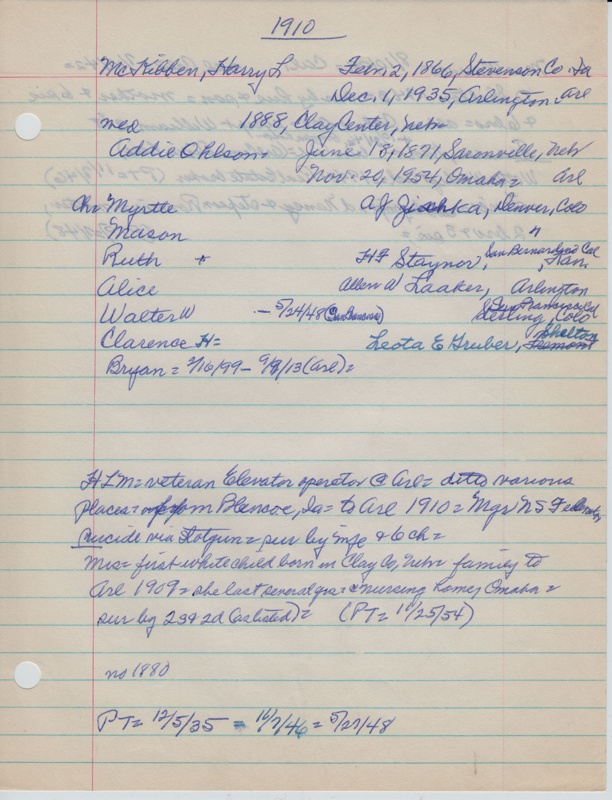 1910
McKibben, Harry L Feb. 2, 1866, Stevenson Co. Ia
Dec. 1, 1935, Arlington. Arl
med 1888, Clay Center, Nebr
Addie Ohlson. June 18, 1871, Saronville, Nebr
Nov. 20, 1954, Omaha = Arl
Ch= Myrtle AJ Zichka, Denver, Colo
Mason "
Ruth + HF Staynor, San Bernardino Cal
Alice Allen W Laaker, Arlington
San Francisco
Walter W - 5/24/48 Sterling, Colo
Shelton
Clarence H= Leota E Gruber, Fremont
Bryan = 2/16/99 - 9/8/13 (Arl) =
HLM = veteran Elevator operator @ Arl = ditto various
places = from Blencoe, Ia = to Arl 1910 = Mgr NS
Suicide via Shotgun = sur by & 6 ch =
Mrs = first white child born in Clay Co, Nebr = family to
Arl 1909 = she last several yrs = nursing home, Omaha =
sur by 2s & 2d (as listed) = (PT = 11/25/54)
no 1880
PT = 12/5/35 = /7/46 = 5/27/48